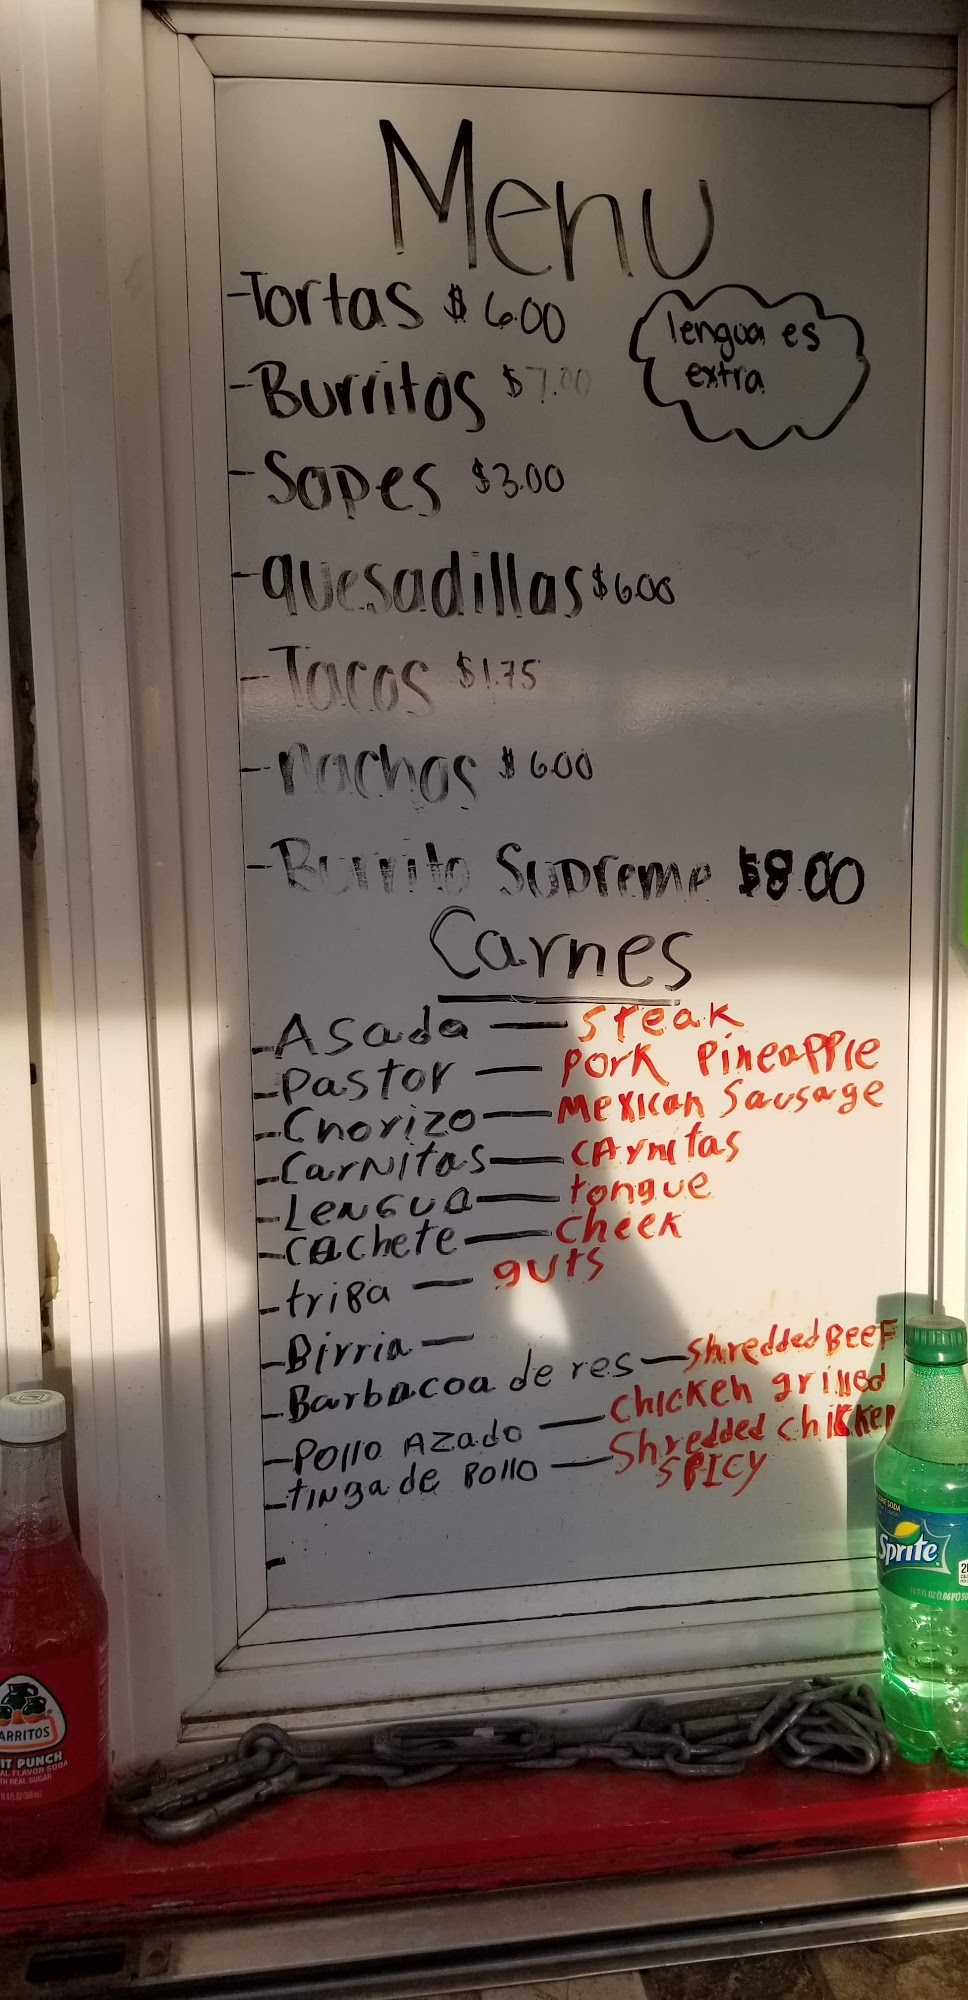 Menu
-Tortas $ 6.00
lengua es
extra
-Burritos $7.00
-Sopes $3.00
-quesadillas $6.00
-Tacos $1.75
-nachos $6.00
-Burrito Supreme $8.00
Carnes
-Asada — steak
-Pastor — pork pineapple
-Chorizo — Mexican Sausage
-CarNitas — CArnitas
-LenGUA — tongue
-Cachete — Cheek
-triPa — guts
-Birria —
-Barbacoa de res — Shredded BeeF
-Pollo AZado — Chicken grilled
-tiNga de Pollo — Shredded chicken
SPICY
-
ARRITOS
IT PUNCH
AL FLAVOR SODA
TH REAL SUGAR
Sprite